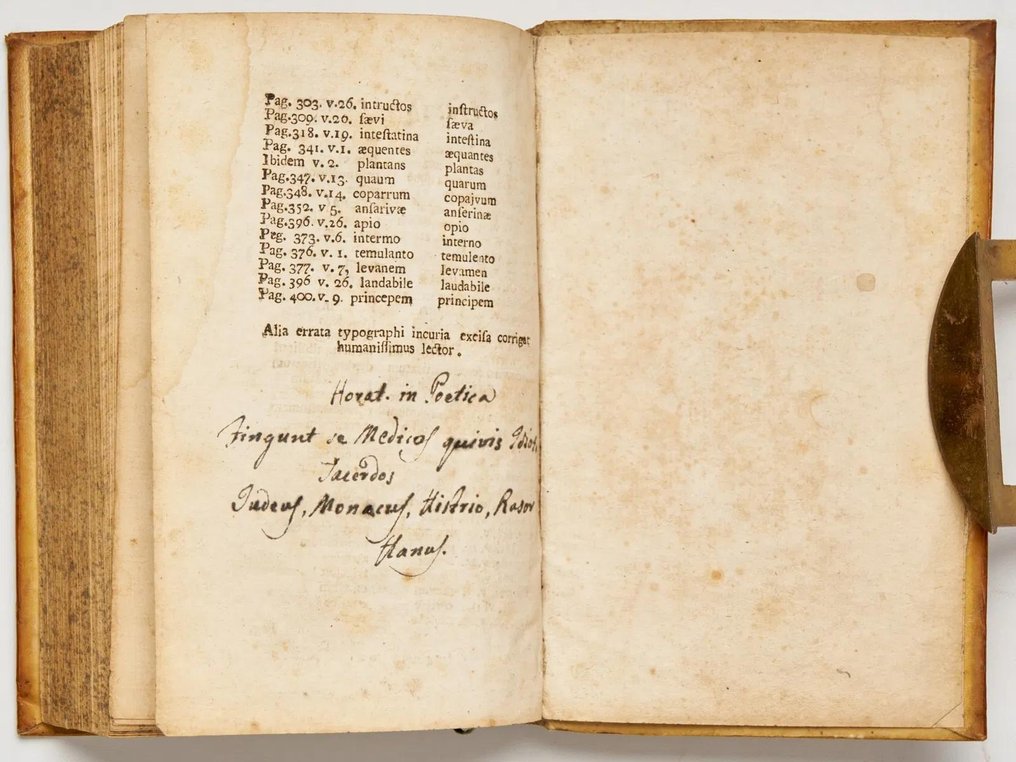 Pag. 303. v.26. intructos inſtructos
Pag.309. v.20. ſævi ſæva
Pag.318. v.19. inteſtatina inteſtina
Pag. 341. v.1. æquentes æquantes
Ibidem v. 2. plantans plantas
Pag.347. v.13. quaum quarum
Pag.348. v.14. coparrum copajvum
Pag.352. v 5. anſarivæ anſerinæ
Pag.396. v.26. apio opio
Peg. 373. v.6. intermo interno
Pag. 376. v. 1. temulanto temulento
Pag. 377. v. 7, levanem levamen
Pag. 396 v. 26. landabile laudabile
Pag. 400. v. 9. princepem principem
Alia errata typographi incuria exciſa corrigat
humaniſſimus lector.
Horat. in Poetica
Fingunt se Medicos quivis
Sacerdos
Judeus, Monacus, Histrio, Rasor